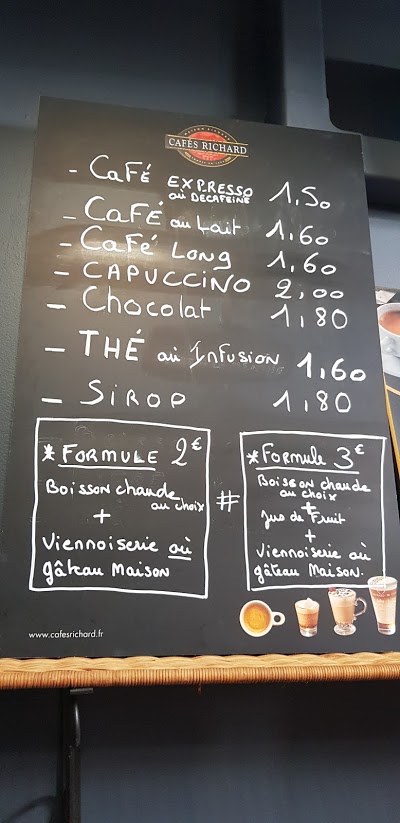 CAFÉS RICHARD
- CaFÉ EXPRESSO ou DECAFEINE 1,50
- CaFÉ au Lait 1,60
- CaFé LONG 1,60
- CAPUCCINO 2,00
- Chocolat 1,80
- THÉ où INFUSION 1,60
- SIROP 1,80
* FORMULE 2€
Boisson chaude
au choix
+
Viennoiserie où
gâteau Maison
#
* FORMule 3€
BOISSON chaude
au choix
+
Jus de Fruit
+
Viennoiserie où
gâteau Maison.
www.cafesrichard.fr